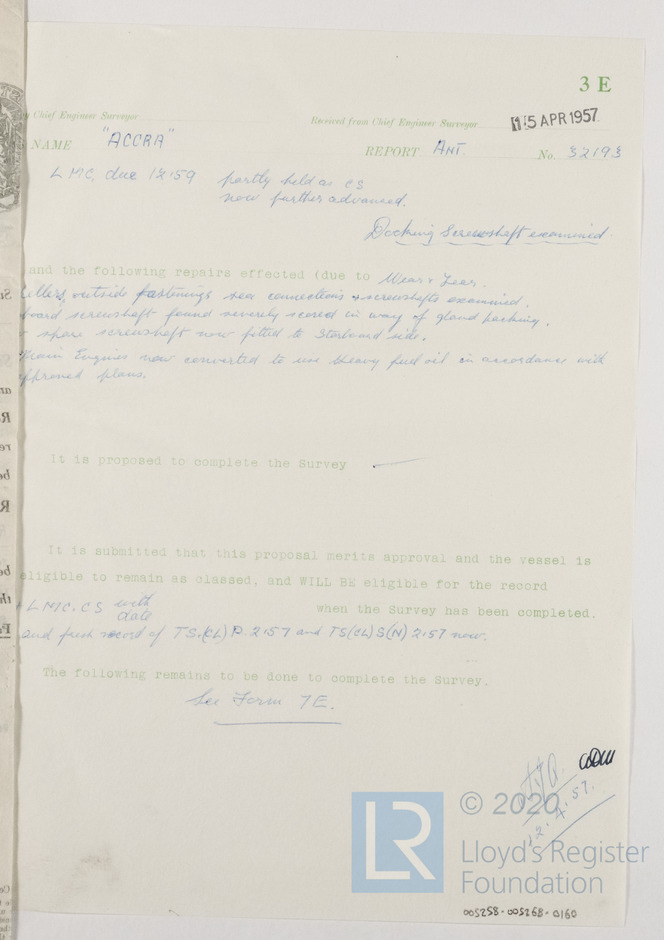 3 E
Chief Engineer Surveyor
Received from Chief Engineer Surveyor
15 APR 1957
NAME "ACCRA"
REPORT ANT. No. 32193
LMC, due 12.59 partly held as CS
now further advanced.
Docking Screwshaft examined.
and the following repairs effected (due to Wear & Tear.
ellers, outside fastenings sea connections & screwshafts examined.
board screwshaft found severely scored in way of gland packing.
spare screwshaft now fitted to Starboard side.
Main Engines now converted to use heavy fuel oil in accordance with
approved plans.
It is proposed to complete the Survey
It is submitted that this proposal merits approval and the vessel is
eligible to remain as classed, and WILL BE eligible for the record
LMC.CS with
date
when the Survey has been completed.
and fresh record of TS.(CL) P. 2.57 and TS(CL) S(N) 2.57 now.
The following remains to be done to complete the Survey.
See Form 7E.
12.4.57.
LR
© 2020
Lloyd's Register
Foundation
005258-005268-0160